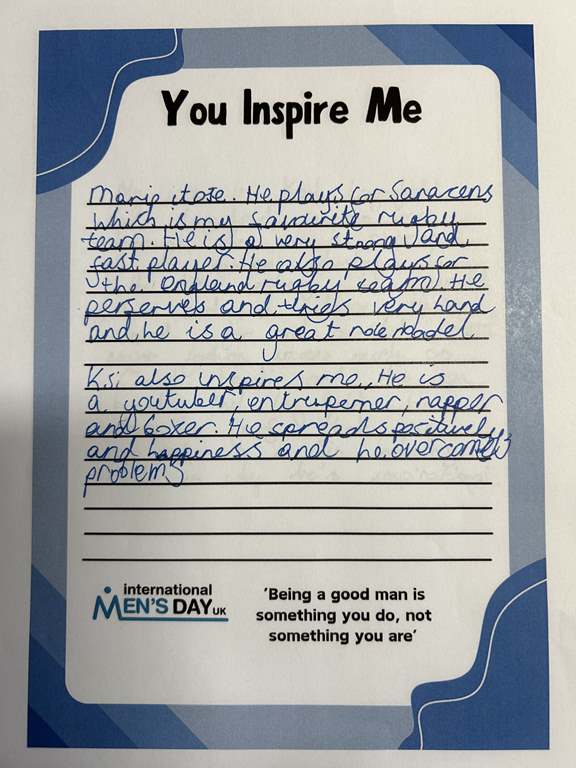 You Inspire Me
Mario itoje. He plays for Saracens
which is my favourite rugby
team. He is a very strong and
fast player. He also plays for
the england rugby team. He
perserves and tries very hard
and he is a great role model
Ksi also inspires me. He is
a youtuber, entrupemer, rapper
and boxer. He spreads positively
and happiness and he overcomes
problems
international
MEN'S DAY UK
'Being a good man is
something you do, not
something you are'